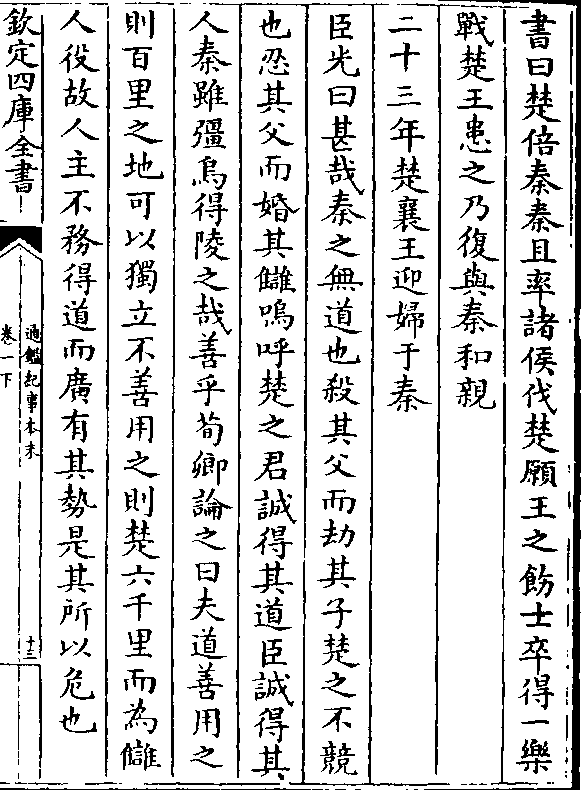 書曰楚倍秦秦且率諸侯伐楚願王之飭士卒得一樂
戰楚王患之乃復與秦和親
二十三年楚襄王迎婦于秦
臣光曰甚哉秦之無道也殺其父而劫其子楚之不競
也忍其父而婚其讎嗚呼楚之君誠得其道臣誠得其
人秦雖彊烏得陵之哉善乎荀卿論之曰夫道善用之
則百里之地可以獨立不善用之則楚六千里而為讎
人役故人主不務得道而廣有其勢是其所以危也
欽定四庫全書
通鑑紀事本末
卷一下
十三